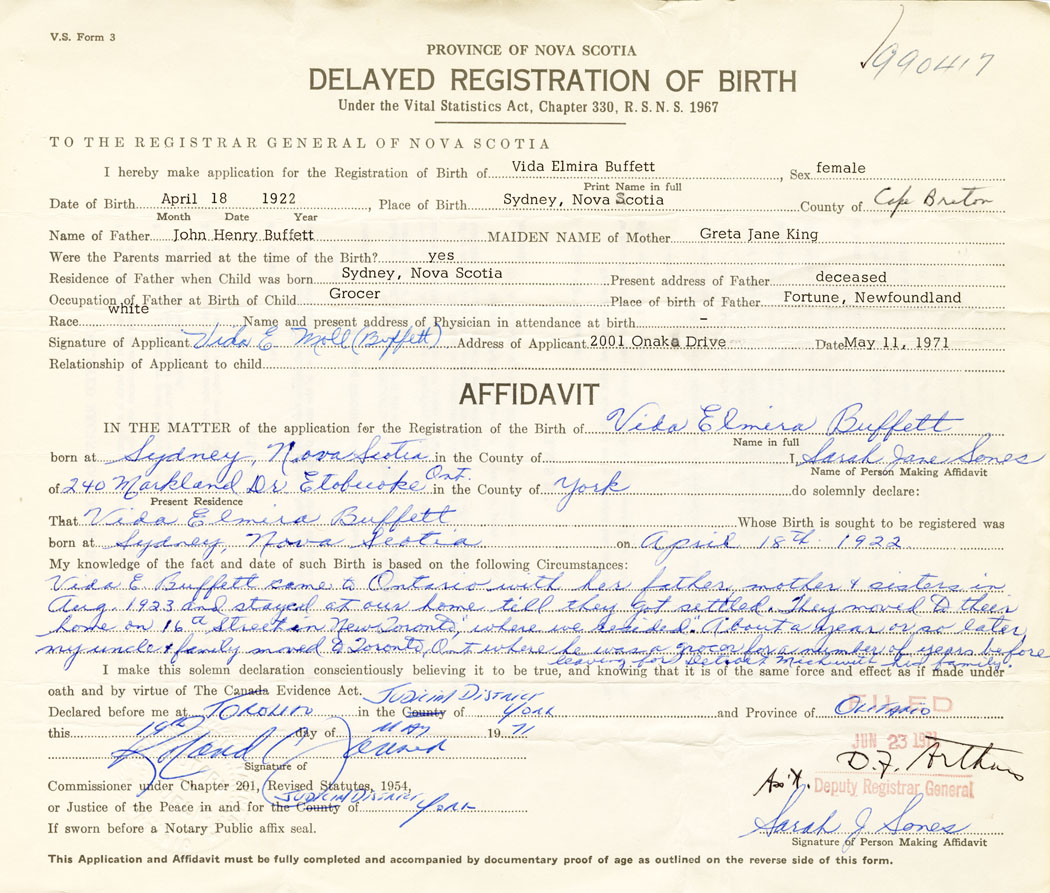 V.S. Form 3
990417
PROVINCE OF NOVA SCOTIA
DELAYED REGISTRATION OF BIRTH
Under the Vital Statistics Act, Chapter 330, R. S. N. S. 1967
TO THE REGISTRAR GENERAL OF NOVA SCOTIA
I hereby make application for the Registration of Birth of Vida Elmira Buffett, Sex female
Print Name in full
Date of Birth April 18 1922, Place of Birth Sydney, Nova Scotia County of Cape Breton
Month Date Year
Name of Father John Henry Buffett MAIDEN NAME of Mother Greta Jane King
Were the Parents married at the time of the Birth? yes
Residence of Father when Child was born Sydney, Nova Scotia Present address of Father deceased
Occupation of Father at Birth of Child Grocer Place of birth of Father Fortune, Newfoundland
Race white Name and present address of Physician in attendance at birth –
Signature of Applicant Vida E Moll (Buffett) Address of Applicant 2001 Onaka Drive Date May 11, 1971
Relationship of Applicant to child
AFFIDAVIT
IN THE MATTER of the application for the Registration of the Birth of Vida Elmira Buffett
Name in full
born at Sydney, Nova Scotia in the County of I, Sarah Jane Sones
Name of Person Making Affidavit
of 240 Markland Dr Etobicoke Ont. in the County of York do solemnly declare:
Present Residence
That Vida Elmira Buffett Whose Birth is sought to be registered was
born at Sydney, Nova Scotia on April 18th 1922
My knowledge of the fact and date of such Birth is based on the following Circumstances:
Vida E. Buffett came to Ontario with her father, mother & sisters in
Aug. 1923 and stayed at our home till they got settled. They moved to their
home on 16th Street in "New Toronto", where we resided. About a year or so later,
my uncle & family moved to Toronto, Ont where he was a grocer for a number of years before
leaving for Detroit Mich with his family.
I make this solemn declaration conscientiously believing it to be true, and knowing that it is of the same force and effect as if made under
oath and by virtue of The Canada Evidence Act.
Declared before me at TORONTO in the County JUDICIAL DISTRICT of YORK and Province of ONTARIO
this 19th day of MAY 19 71
FILED
JUN 23 1971
Signature of
D. F. Arthurs
Ass't. Deputy Registrar General
Commissioner under Chapter 201, Revised Statutes, 1954,
or Justice of the Peace in and for the County JUDICIAL DISTRICT of York
Sarah J Sones
If sworn before a Notary Public affix seal.
Signature of Person Making Affidavit
This Application and Affidavit must be fully completed and accompanied by documentary proof of age as outlined on the reverse side of this form.